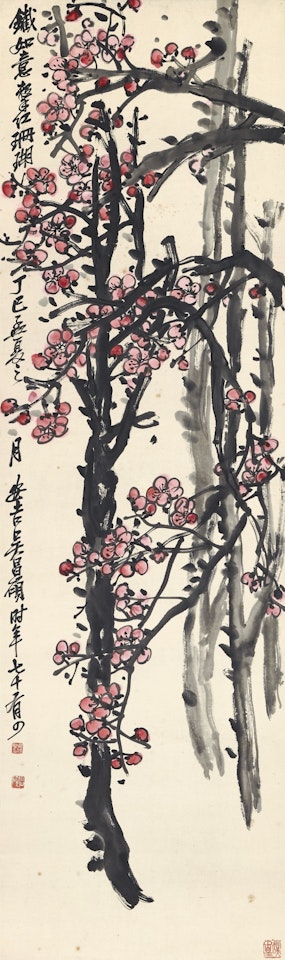 鐵如意擊碎紅珊瑚丁巳孟夏之月安吉吳昌碩時年七十有四